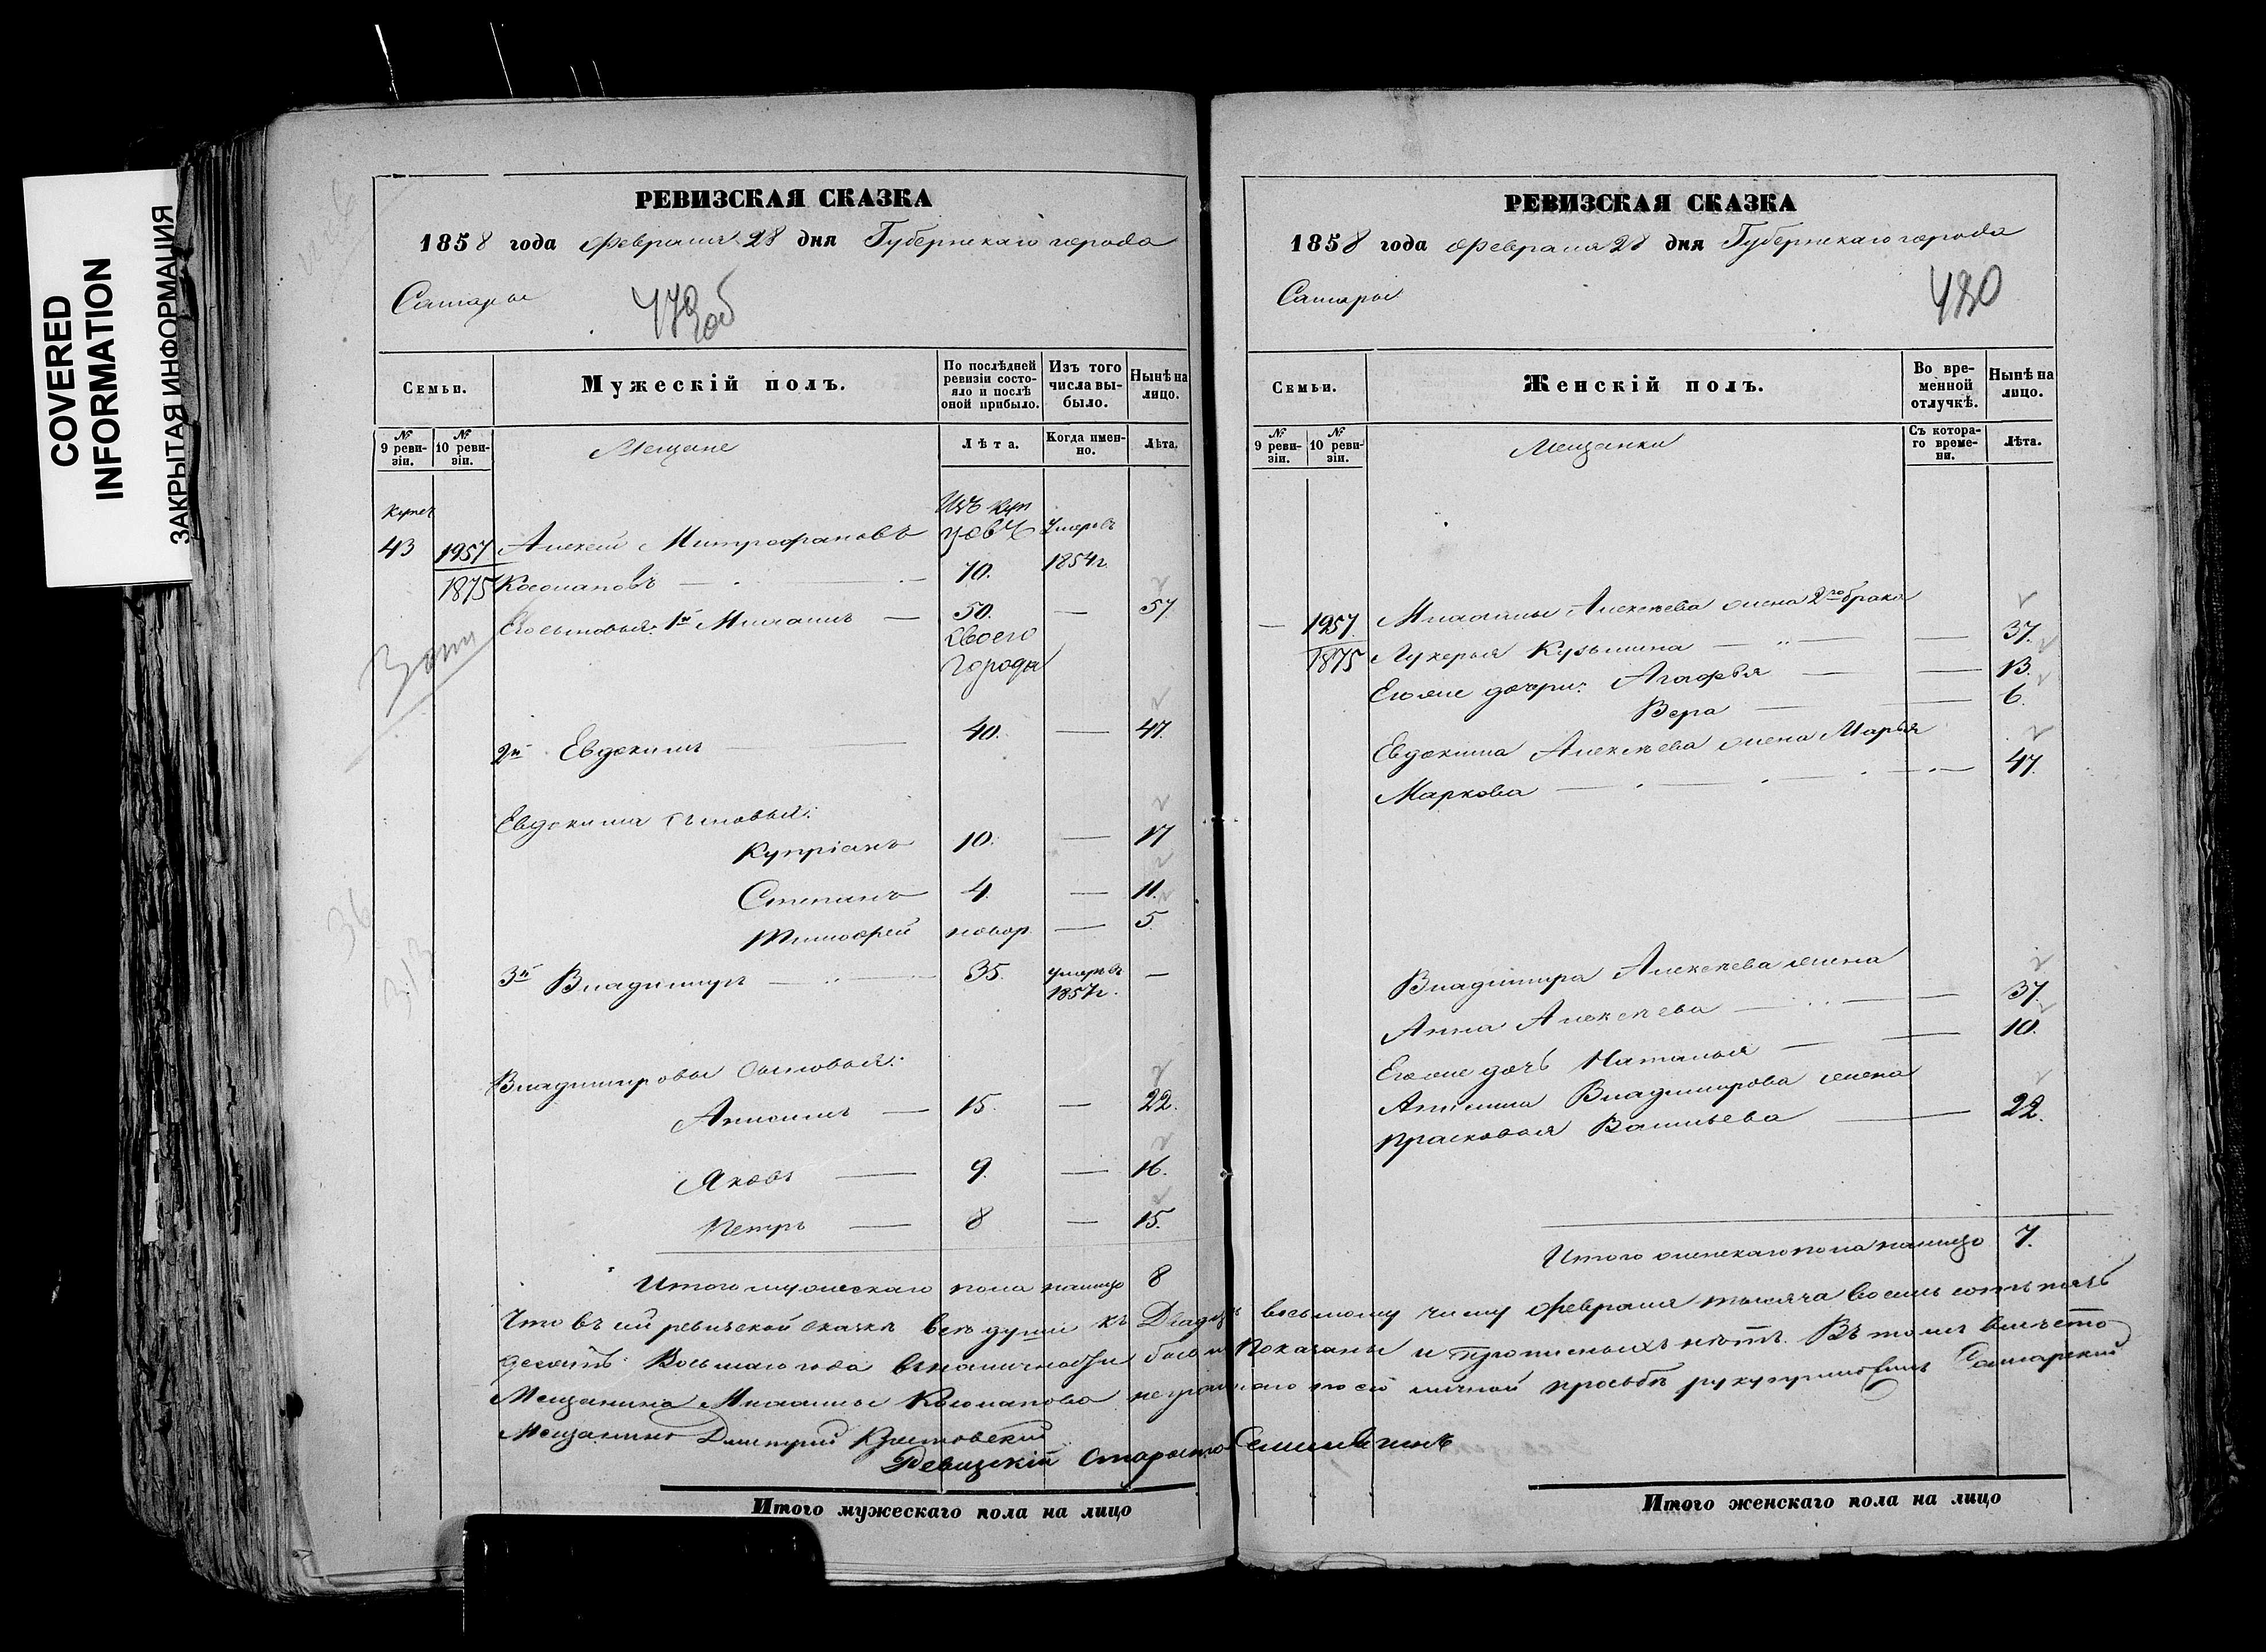 COVERED
INFORMATION
ЗАКРЫТАЯ ИНФОРМАЦИЯ
РЕВИЗСКАЯ СКАЗКА
1858 года Февраля 28 дня Губернскаго города
Самары
479об
Семьи.
Мужескій полъ.
По послѣдней ревизіи состояло и послѣ оной прибыло.
Изъ того числа выбыло.
Нынѣ на лицо.
№ 9 ревизіи.
№ 10 ревизіи.
Мещане
Лѣта.
Когда именно.
Лѣта.
купеч
43 1957 Алексей Митрофановъ Изъ купцовъ Умеръ въ
1875 Косолаповъ 70. 1854г.
Его сыновья: 1й Михаилъ 50. — 57.
своего
города
2й Евдокимъ 40. — 47.
Евдокима сыновья:
Купріанъ 10. — 17
Степанъ 4. — 11.
Тимофей новор. — 5.
3й Владимиръ 35. умеръ въ —
1857г.
Владимировы сыновья:
Анисимъ — 15. — 22.
Яковъ — 9. — 16.
Петръ — 8 — 15.
Итого мужескаго пола налицо 8
РЕВИЗСКАЯ СКАЗКА
1858 года Февраля 28 дня Губернскаго города
Самары
480
Семьи.
Женскій полъ.
Во временной отлучкѣ.
Нынѣ на лицо.
№ 9 ревизіи.
№ 10 ревизіи.
Мещанки
Съ котораго времени.
Лѣта.
— 1957. Михаилы Алексѣева жена 2го брака
1875 Лукерья Кузьмина — 37.
Его же дочери: Агафья — 13.
Вера — 6.
Евдокима Алексѣева жена Марья
Маркова — 47.
Владимира Алексѣева жена
Анна Алексѣева — 37.
Его же дочь Наталья — 10.
Анисима Владимирова жена
Прасковья Васильева — 22.
Итого женскаго пола налицо 7.
Что въ сей ревизской сказкѣ всѣ души къ Двадцать восьмому числу Февраля тысяча восемь сотъ пять
десятъ Восьмаго года въ наличности показаны и прописныхъ нѣтъ. Въ томъ вместо
Мещанина Михаилы Косолапова по его личной просьбѣ Самарский
Мещанинъ Дмитрий
Ревизскій Староста
Итого мужескаго пола на лицо
Итого женскаго пола на лицо